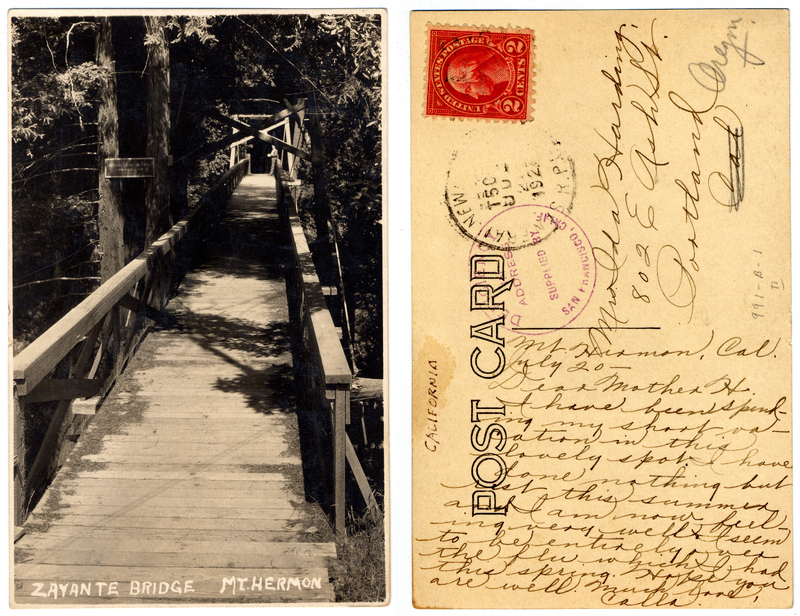 ZAYANTE BRIDGE MT. HERMON
UNITED STATES POSTAGE
2 CENTS 2
T50
JUL
192
R.P.O.
ADDRESS
SUPPLIED BY
SAN FRANCISCO CALIF.
POST CARD
CALIFORNIA
991-A-1
II
Mrs. Ida Harding.
802 E Ash St.
Portland
Cal
Oregon
Mt. Hermon, Cal.
July 20—
Dear Mother H.
I have been spend-
ing my short va-
cation in this
lovely spot. I have
done nothing but
rest this summer
and I am now feel-
ing very well. I seem
to be entirely over
the flu which I had
this spring. Hope you
are well. Much love,
Calla.